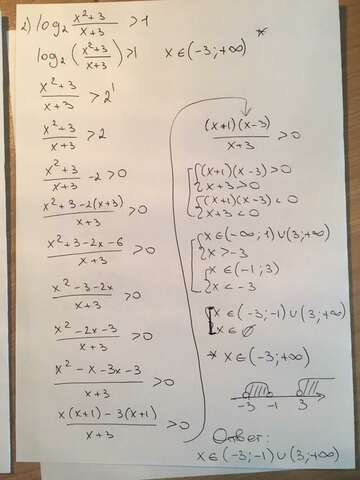 2) log₂ (x²+3)/(x+3) > 1
log₂ ((x²+3)/(x+3)) > 1   x ∈ (-3; +∞)   *
(x²+3)/(x+3) > 2¹
(x²+3)/(x+3) > 2
(x²+3)/(x+3) - 2 > 0
(x²+3-2(x+3))/(x+3) > 0
(x²+3-2x-6)/(x+3) > 0
(x²-3-2x)/(x+3) > 0
(x²-2x-3)/(x+3) > 0
(x²-x-3x-3)/(x+3) > 0
(x(x+1)-3(x+1))/(x+3) > 0
((x+1)(x-3))/(x+3) > 0
[ { (x+1)(x-3) > 0
{ x+3 > 0
{ (x+1)(x-3) < 0
{ x+3 < 0
[ { x ∈ (-∞; 1) ∪ (3; +∞)
{ x > -3
{ x ∈ (-1; 3)
{ x < -3
[ x ∈ (-3; -1) ∪ (3; +∞)
x ∈ ∅
* x ∈ (-3; +∞)
-3 -1 3
Ответ:
x ∈ (-3; -1) ∪ (3; +∞)